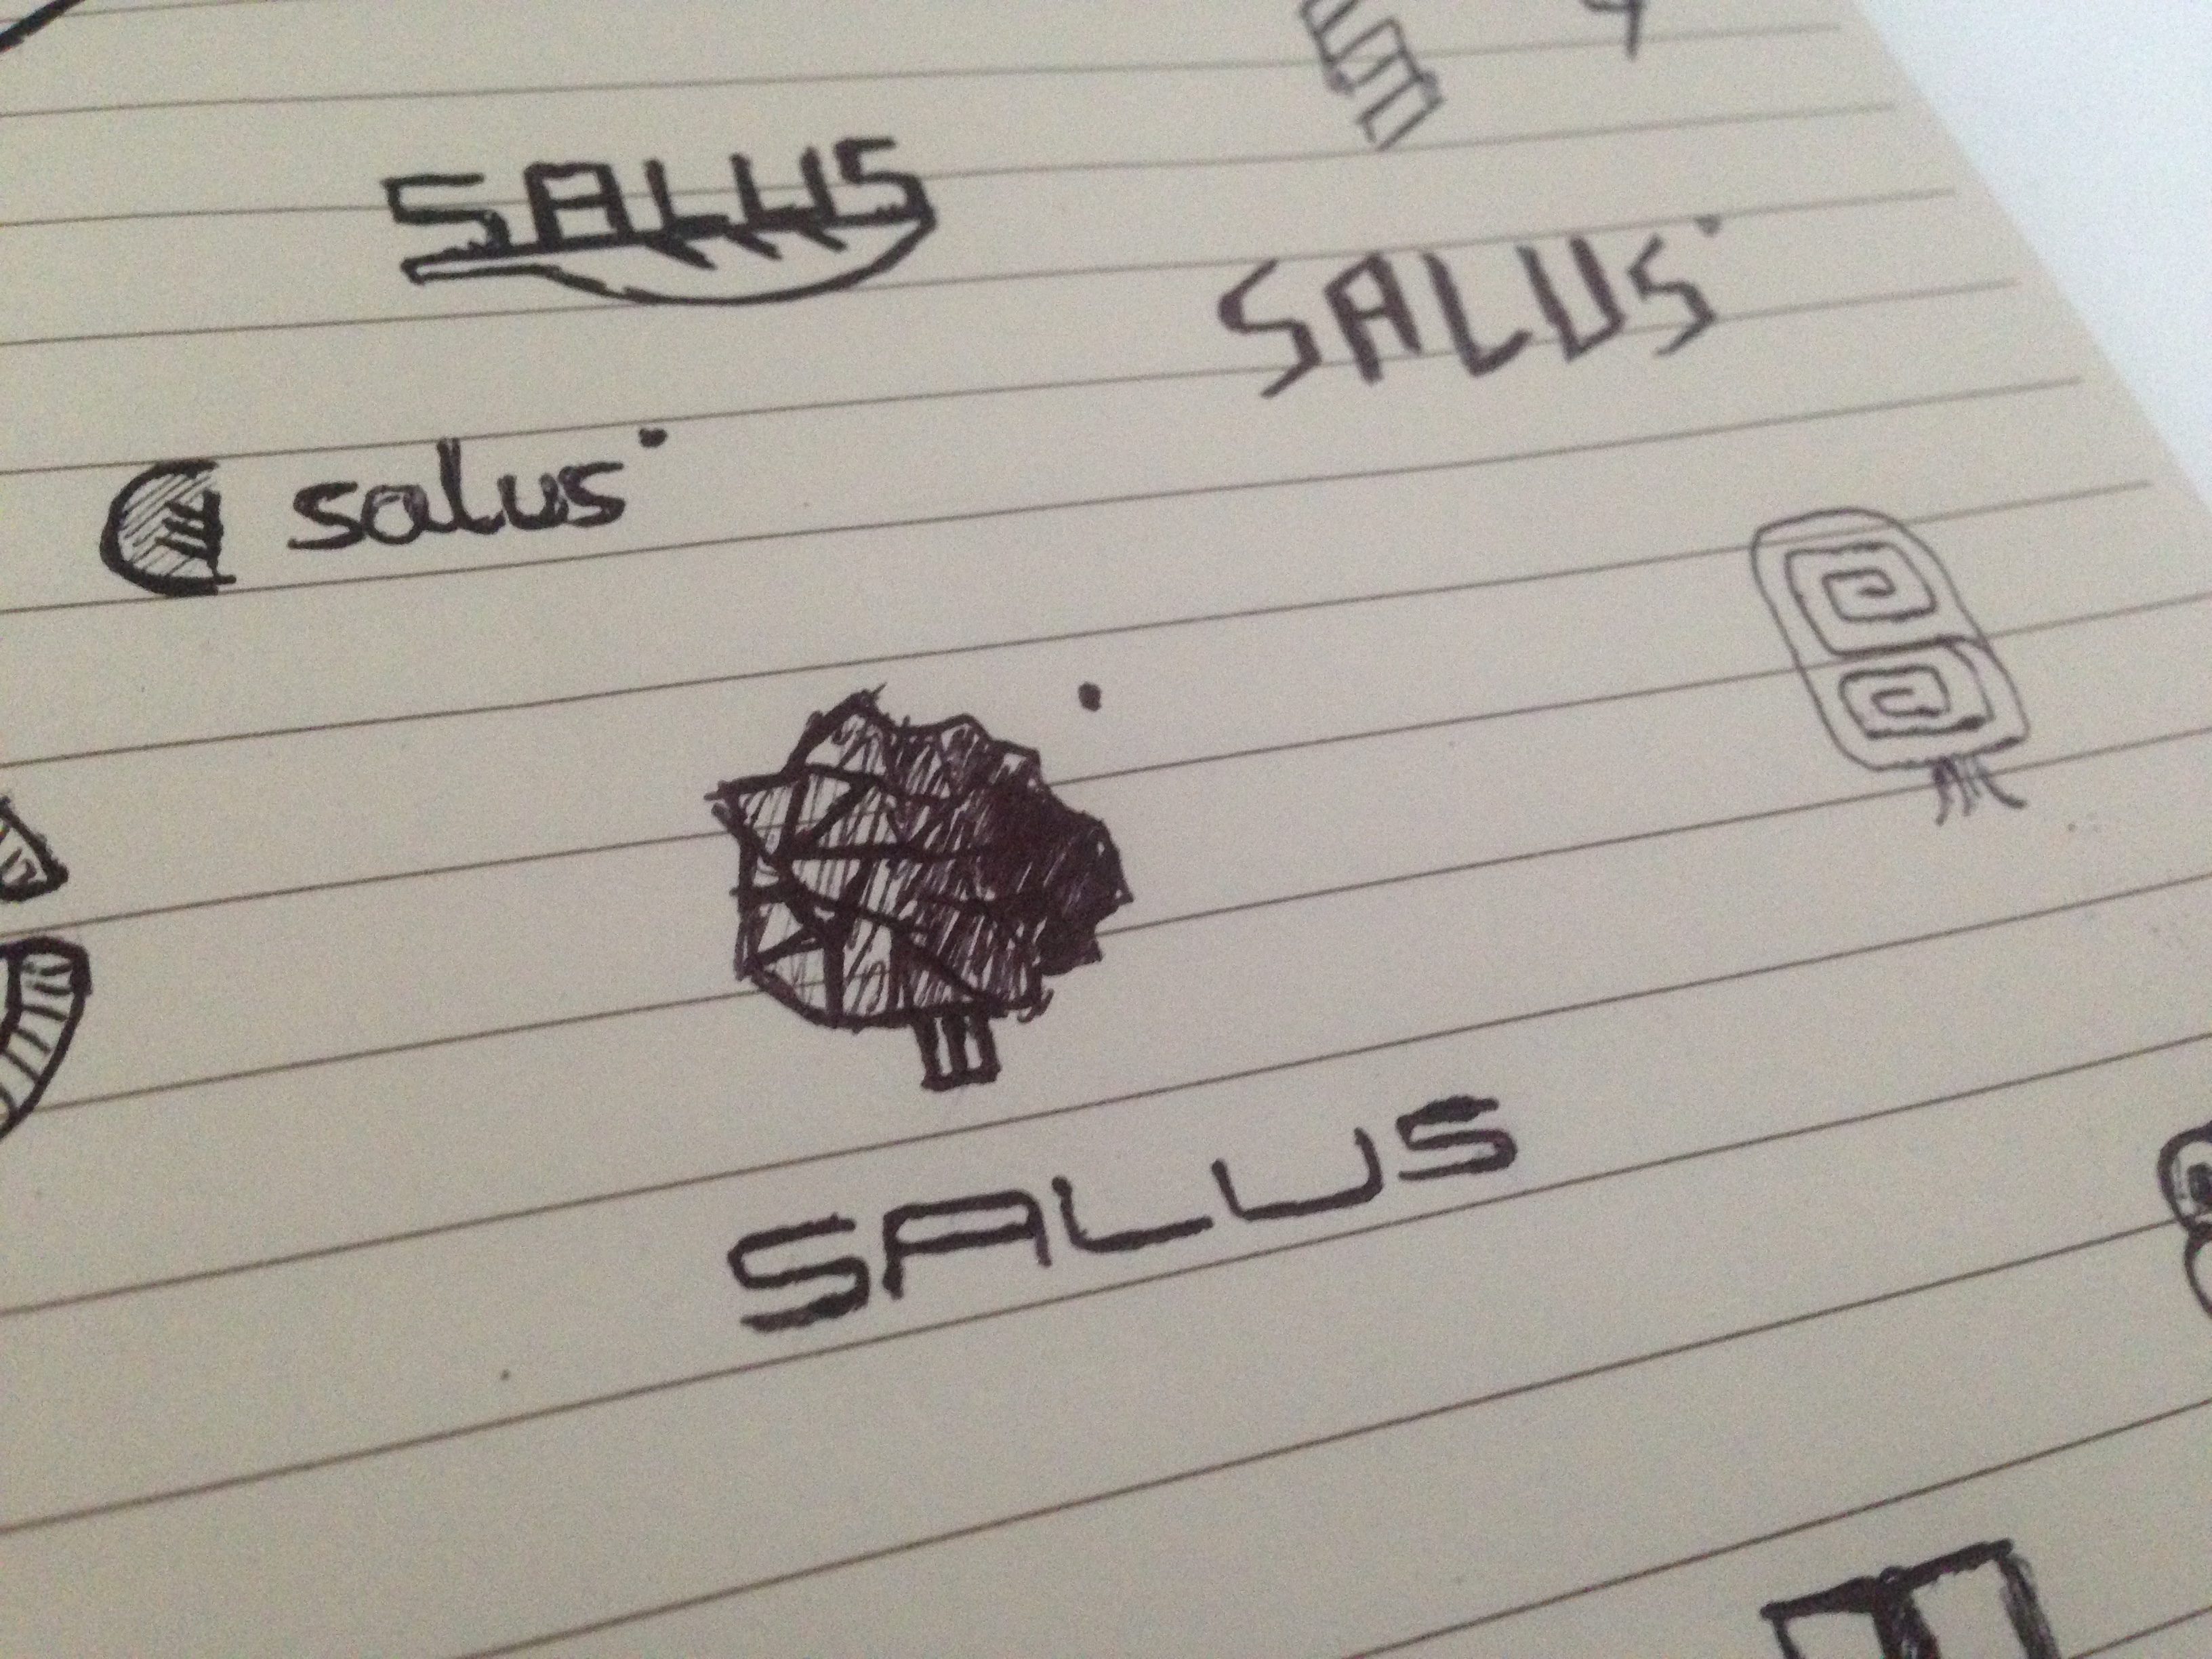 SALUS
SALUS
salus
SALUS